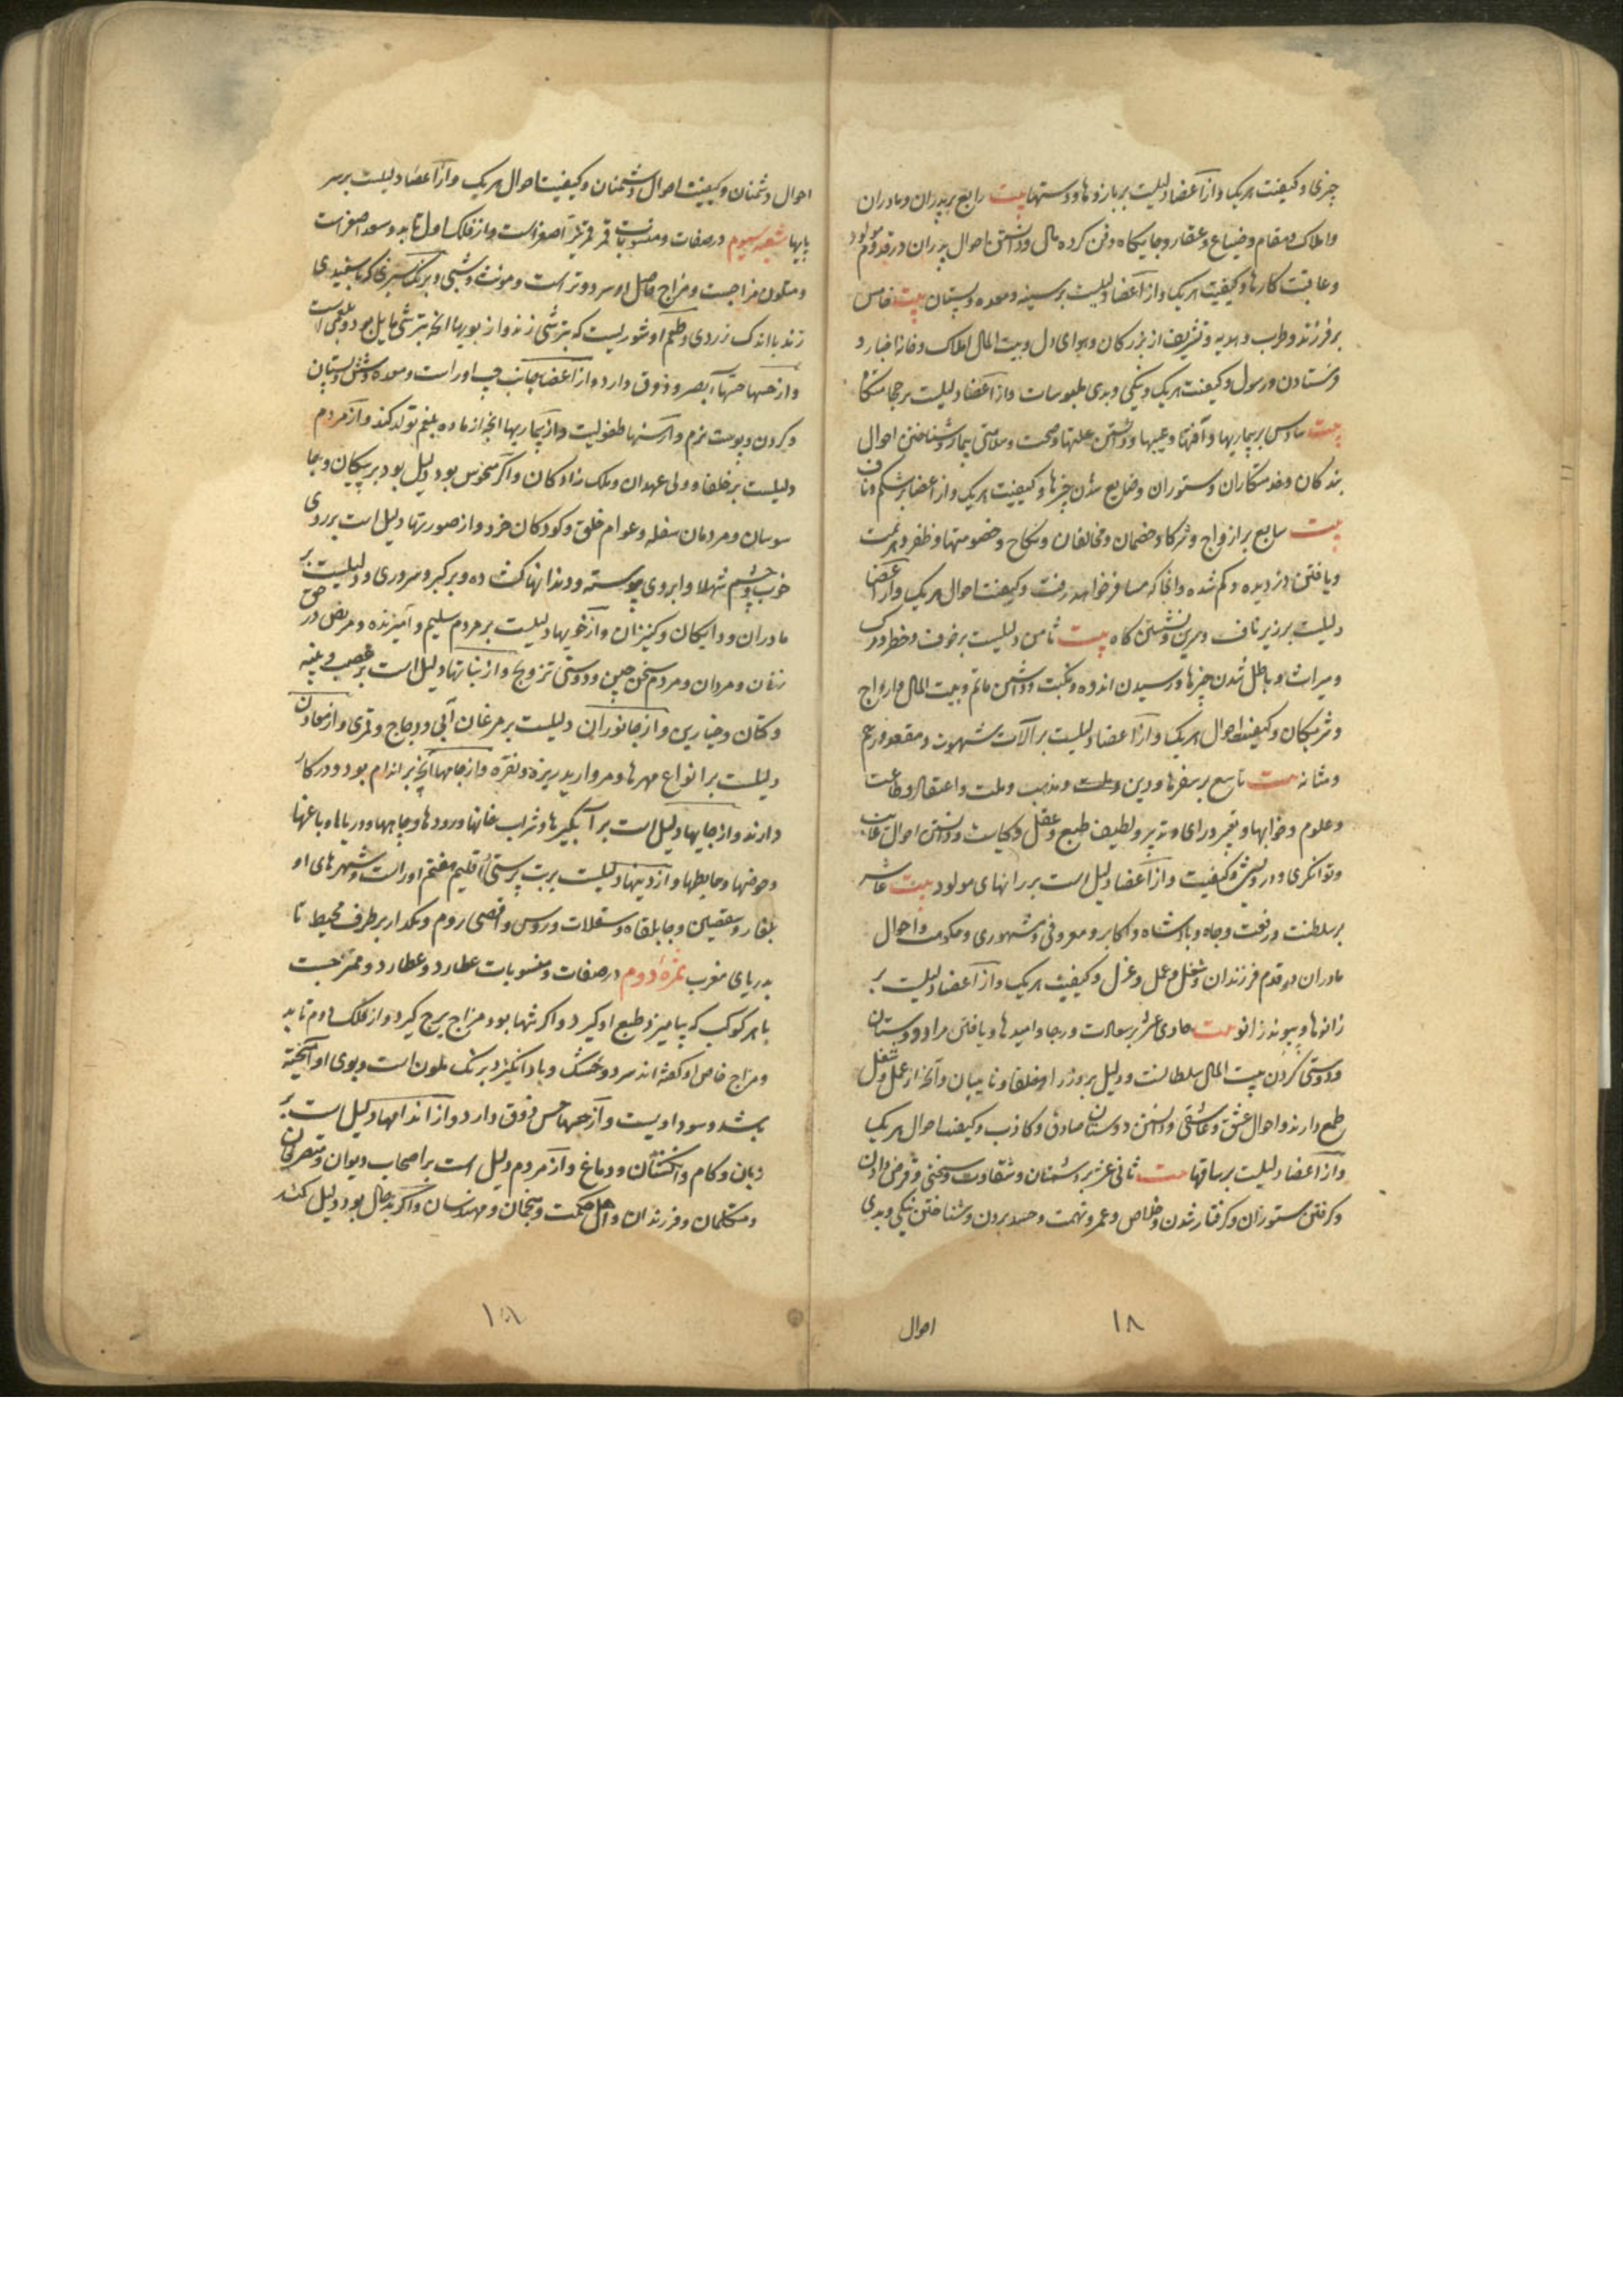 چیزی و کیفیت هریک و از اعضا دلیلست بر بازوها و دستها بیت رابع بر پدران و مادران
و املاک و مقام و ضیاع و عقار و جایکاه دفن کرده مال و دانستن احوال پدران در قدوم مولود
و عاقبت کارها و کیفیت هریک و از اعضا دلیلست بر سینه و معده و پستان بیت خامس
بر فرزند و طرب و هدیه و تشریف از بزرکان و هوای دل و بیت المال املاک و اخبار و
فرستادن و رسول و کیفیت هریک و نیکی و بدی ملبوسات و از اعضا دلیلست بر
بیت سادس بر بیماریها و آفتها و عیبها و دانستن علتها و صحت و سلامتی بیمار و شناختن احوال
بندکان و خدمتکاران و ستوران و ضایع شدن چیزها و کیفیت هریک و از اعضا بر شکم و ناف
بیت سابع بر ازواج و شرکا و خصمان و مخالفان و نکاح و خصومتها و ظفر و هزیمت
و یافتن دزدیده و کم شده و انجا که مسافر خواهد رفت و کیفیت احوال هریک و از اعضا
دلیلست بر زیر ناف و سرین و نشستن کاه بیت ثامن دلیلست بر خوف و خطر و مرک
و میراث و باطل شدن چیزها و رسیدن اندوه و نکبت و داشتن ماتم و بیت المال ازواج
و شریکان و کیفیت احوال هریک و از اعضا دلیلست بر آلات شهوت و مقعد و رحم
و مثانه بیت تاسع بر سفرها و دین و مذهب و ملت و اعتقاد و طاعت
و علوم و خوابها و تعبیر و رای و تدبیر و لطیف طبع و عقل و کیاست و دانستن احوال غایب
و توانکری و درویشی و کیفیت و از اعضا دلیل است بر رانهای مولود بیت عاشر
بر سلطنت و رفعت و جاه و پادشاه و اکابر و معروفی و مشهوری و حکومت و احوال
مادران در قدم فرزندان و شغل و عمل و عزل و کیفیت هریک و از اعضا دلیلست بر
زانوها و پیوند زانو بیت حادی عشر بر سعادت و رجا و امیدها و یافتن مراد و دوستان
و دوستی کردن بیت المال سلطانست و دلیل بر وزرا و خلفا و نایبان و آنچه از عمل و شغل
طمع دارند و احوال عشق و عاشقی و دانستن دوستان صادق و کاذب و کیفیت احوال هریک
و از اعضا دلیلست بر ساقها بیت ثانی عشر بر دشمنان و شقاوت و سختی و قرض دادن
و کرفتن ستوران و کرفتار شدن و خلاص و غم و تهمت و حسد بردن و شناختن نیکی و بدی
احوال
۱۸
احوال دشمنان و کیفیت احوال دشمنان و کیفیت احوال هریک و از اعضا دلیلست بر سر
پایها شعبه سیوم در صفات و منسوبات قمر قمر نیر اصغر است و از فلک اول تابد و سعد اصغر است
و متلون مزاجست و مزاج حاصل او سرد و تر است و مونث و شبی و برنک سبزی که با سفیدی
زند با اندک زردی و طعم او شوریست که بترشی زند و از بویها آنچه بترشی مایل بود و بلغمی است
و از حسها حسها بصر و ذوق دارد و از اعضا جانب چپ او راست و معده و شش و پستان
و کردن و پوست نرم و از سنها طفولیت و از بیماریها آنچه از ماده بلغم تولد کند و از مردم
دلیلست بر خلفا و ولی عهدان و ملک زادکان و اکر منحوس بود دلیل بود بر پیکان و جا
سوسان و مردمان سفله و عوام خلق و کودکان خرد و از صورتها دلیل است بر روی
خوب و چشم شهلا و ابروی پیوسته و دندانها کشاده و بر کبر و سروری و دلیلست بر
مادران و دایکان و کنیزان و از خویها دلیلست بر مردم سلیم و آمیزنده و حریص در
زنان و مردان و مردم سخن چین و دوستی تزویج و از نباتها دلیل است بر قصب و پنبه
و کتان و خیارین و از جانوران دلیلست بر مرغان آبی و دجاج و قمری و از معادن
دلیلست بر انواع مهرها و مروارید ریزه و نقره و از جامها آنچه بر اندام بود و در کار
دارند و از جایها دلیل است بر آبکیرها و شراب خانها و رودها و چاهها و دریاها و باغها
و حوضها و حایطها و از دینها دلیلست بر بت پرستی اقلیم هفتم او راست و شهرهای او
بلغار و سقسین و جابلقا و سقلات و روس و اقصی روم و بر طرف محیط تا
بدریای مغرب ثمره دوم در صفات و منسوبات عطارد و عطارد و ممتزجست
با هر کوکب که بیامیزد طبع او کیرد و اکر تنها بود مزاج برج کیرد و از فلک دوم تابد
و مزاج خاص او کفته اند سرد و خشک و باد انکیز و برنک ملون است و بوی او آمیخته
باشد و سوداویست و از حسها حس ذوق دارد و از اندامها دلیل است بر
زبان و کام و انکشتان و دماغ و از مردم دلیل است بر اصحاب دیوان و متصرفان
و متکلمان و فرزندان و اهل حکمت و منجمان و مهندسان و اکر بدحال بود دلیل کند